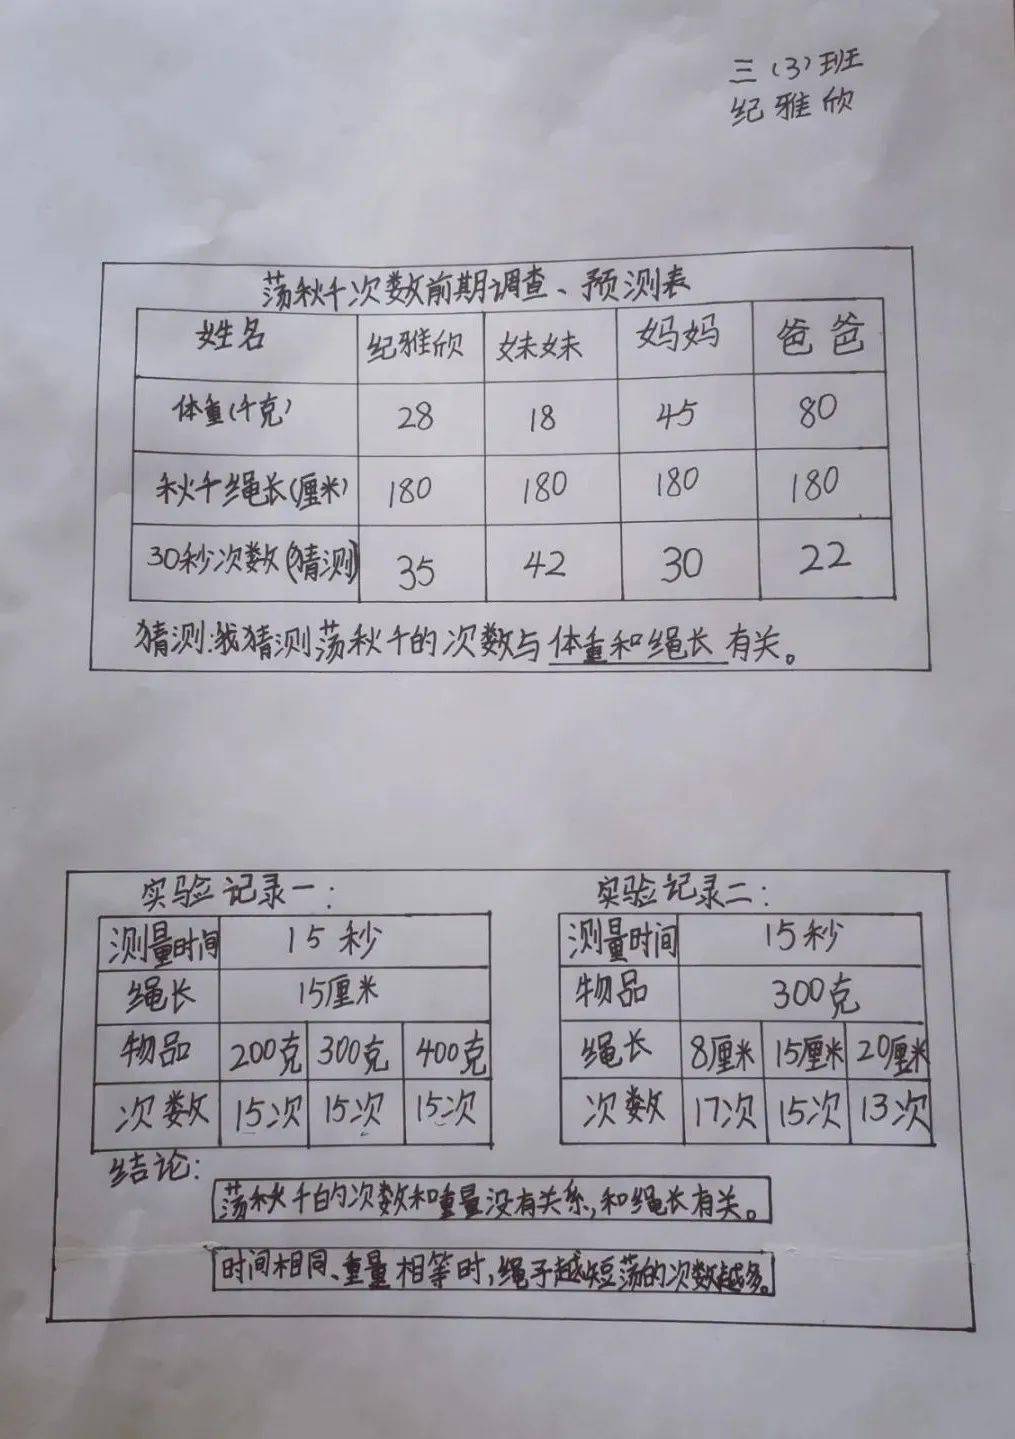 三（3）班
纪雅欣
荡秋千次数前期调查、预测表
姓名 纪雅欣 妹妹 妈妈 爸爸
体重(千克) 28 18 45 80
秋千绳长(厘米) 180 180 180 180
30秒次数(猜测) 35 42 30 22
猜测:我猜测荡秋千的次数与体重和绳长有关。
实验记录一:
测量时间 15秒
绳长 15厘米
物品 200克 300克 400克
次数 15次 15次 15次
实验记录二:
测量时间 15秒
物品 300克
绳长 8厘米 15厘米 20厘米
次数 17次 15次 13次
结论:
荡秋千的次数和重量没有关系,和绳长有关。
时间相同、重量相等时,绳子越短荡的次数越多。